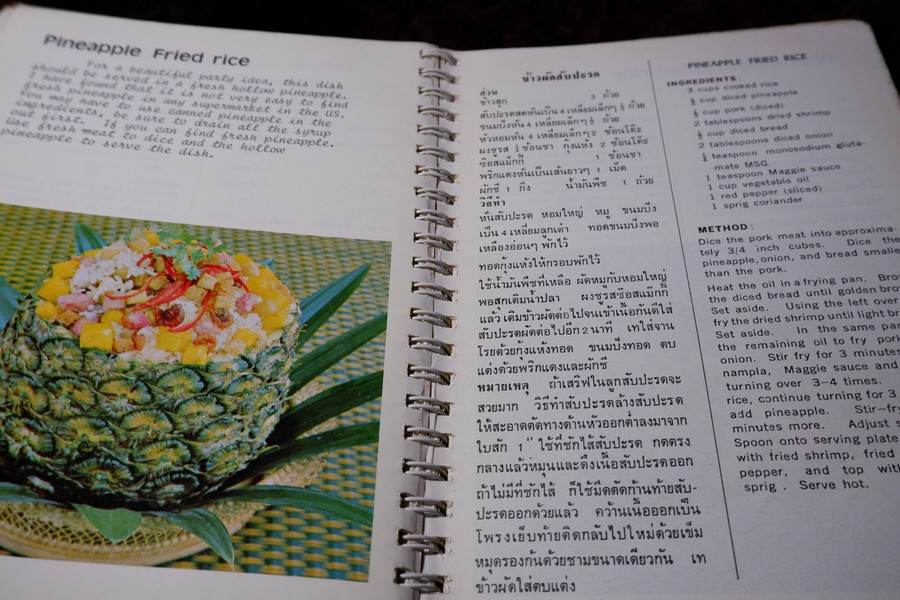 Pineapple Fried rice
For a beautiful party idea, this dish
should be served in a fresh hollow pineapple.
I have found that it is not very easy to find
fresh pineapple in any supermarket in the US.
You may have to use canned pineapple in the
ingredients, be sure to drain all the syrup
out first. If you can find fresh pineapple.
Use fresh meat to dice and the hollow
pineapple to serve the dish.
ข้าวผัดสับปะรด
ส่วน
ข้าวสุก 3 ถ้วย
สับปะรดสดหั่นเป็น 4 เหลี่ยมเล็กๆ ½ ถ้วย
ขนมปังหั่น 4 เหลี่ยมเล็กๆ ½ ถ้วย
หัวหอมหั่น 4 เหลี่ยมเล็กๆ 2 ช้อนโต๊ะ
ผงชูรส ¼ ช้อนชา กุ้งแห้ง 2 ช้อนโต๊ะ
ซ๊อสแม๊กกี้ 1 ช้อนชา
พริกแดงหั่นเป็นเส้นยาวๆ 1 เม็ด
ผักชี 1 กิ่ง น้ำมันพืช 1 ถ้วย
วิธีทำ
หั่นสับปะรด หอมใหญ่ หมู ขนมปัง
เป็น 4 เหลี่ยมลูกเต๋า ทอดขนมปังพอ
เหลืองอ่อนๆ พักไว้
ทอดกุ้งแห้งให้กรอบพักไว้
ใช้น้ำมันพืชที่เหลือ ผัดหมูกับหอมใหญ่
พอสุกเติมน้ำปลา ผงชูรสซ๊อสแม๊กกี้
แล้วเติมข้าวผัดต่อไปจนเข้าเนื้อกันดีใส่
สับปะรดผัดต่อไปอีก 2 นาที เทใส่จาน
โรยด้วยกุ้งแห้งทอด ขนมปังทอด ตบ
แต่งด้วยพริกแดงและผักชี
หมายเหตุ ถ้าเสริฟในลูกสับปะรดจะ
สวยมาก วิธีทำสับปะรดล้างสับปะรด
ให้สะอาดตัดทางด้านหัวออกต่ำลงมาจาก
ใบสัก 1" ใช้ที่ชักไส้สับปะรด กดตรง
กลางแล้วหมุนและดึงเนื้อสับปะรดออก
ถ้าไม่มีที่ชักไส้ ก็ใช้มีดตัดก้านท้ายสับ-
ปะรดออกด้วยแล้ว คว้านเนื้อออกเป็น
โพรงเย็บท้ายติดกลับไปใหม่ด้วยเข็ม
หมุดรองก้นด้วยชามขนาดเดียวกัน เท
ข้าวผัดใส่ตบแต่ง
PINEAPPLE FRIED RICE
INGREDIENTS:
3 cups cooked rice
½ cup diced pineapple
½ cup pork (diced)
2 tablespoons dried shrimp
½ cup diced bread
2 tablespoons diced onion
¼ teaspoon monosodium gluta-
mate MSG.
1 teaspoon Maggie sauce
1 cup vegetable oil
1 red pepper (sliced)
1 sprig coriander
METHOD:
Dice the pork meat into approxima-
tely 3/4 inch cubes. Dice the
pineapple, onion, and bread smalle
than the pork.
Heat the oil in a frying pan. Bro
the diced bread until golden bro
Set aside. Using the left over
fry the dried shrimp until light br
Set aside. In the same pan
the remaining oil to fry pork
onion. Stir fry for 3 minutes
nampla, Maggie sauce and
turning over 3-4 times.
rice, continue turning for 3
add pineapple. Stir-fry
minutes more. Adjust s
Spoon onto serving plate
with fried shrimp, fried
pepper, and top with
sprig. Serve hot.